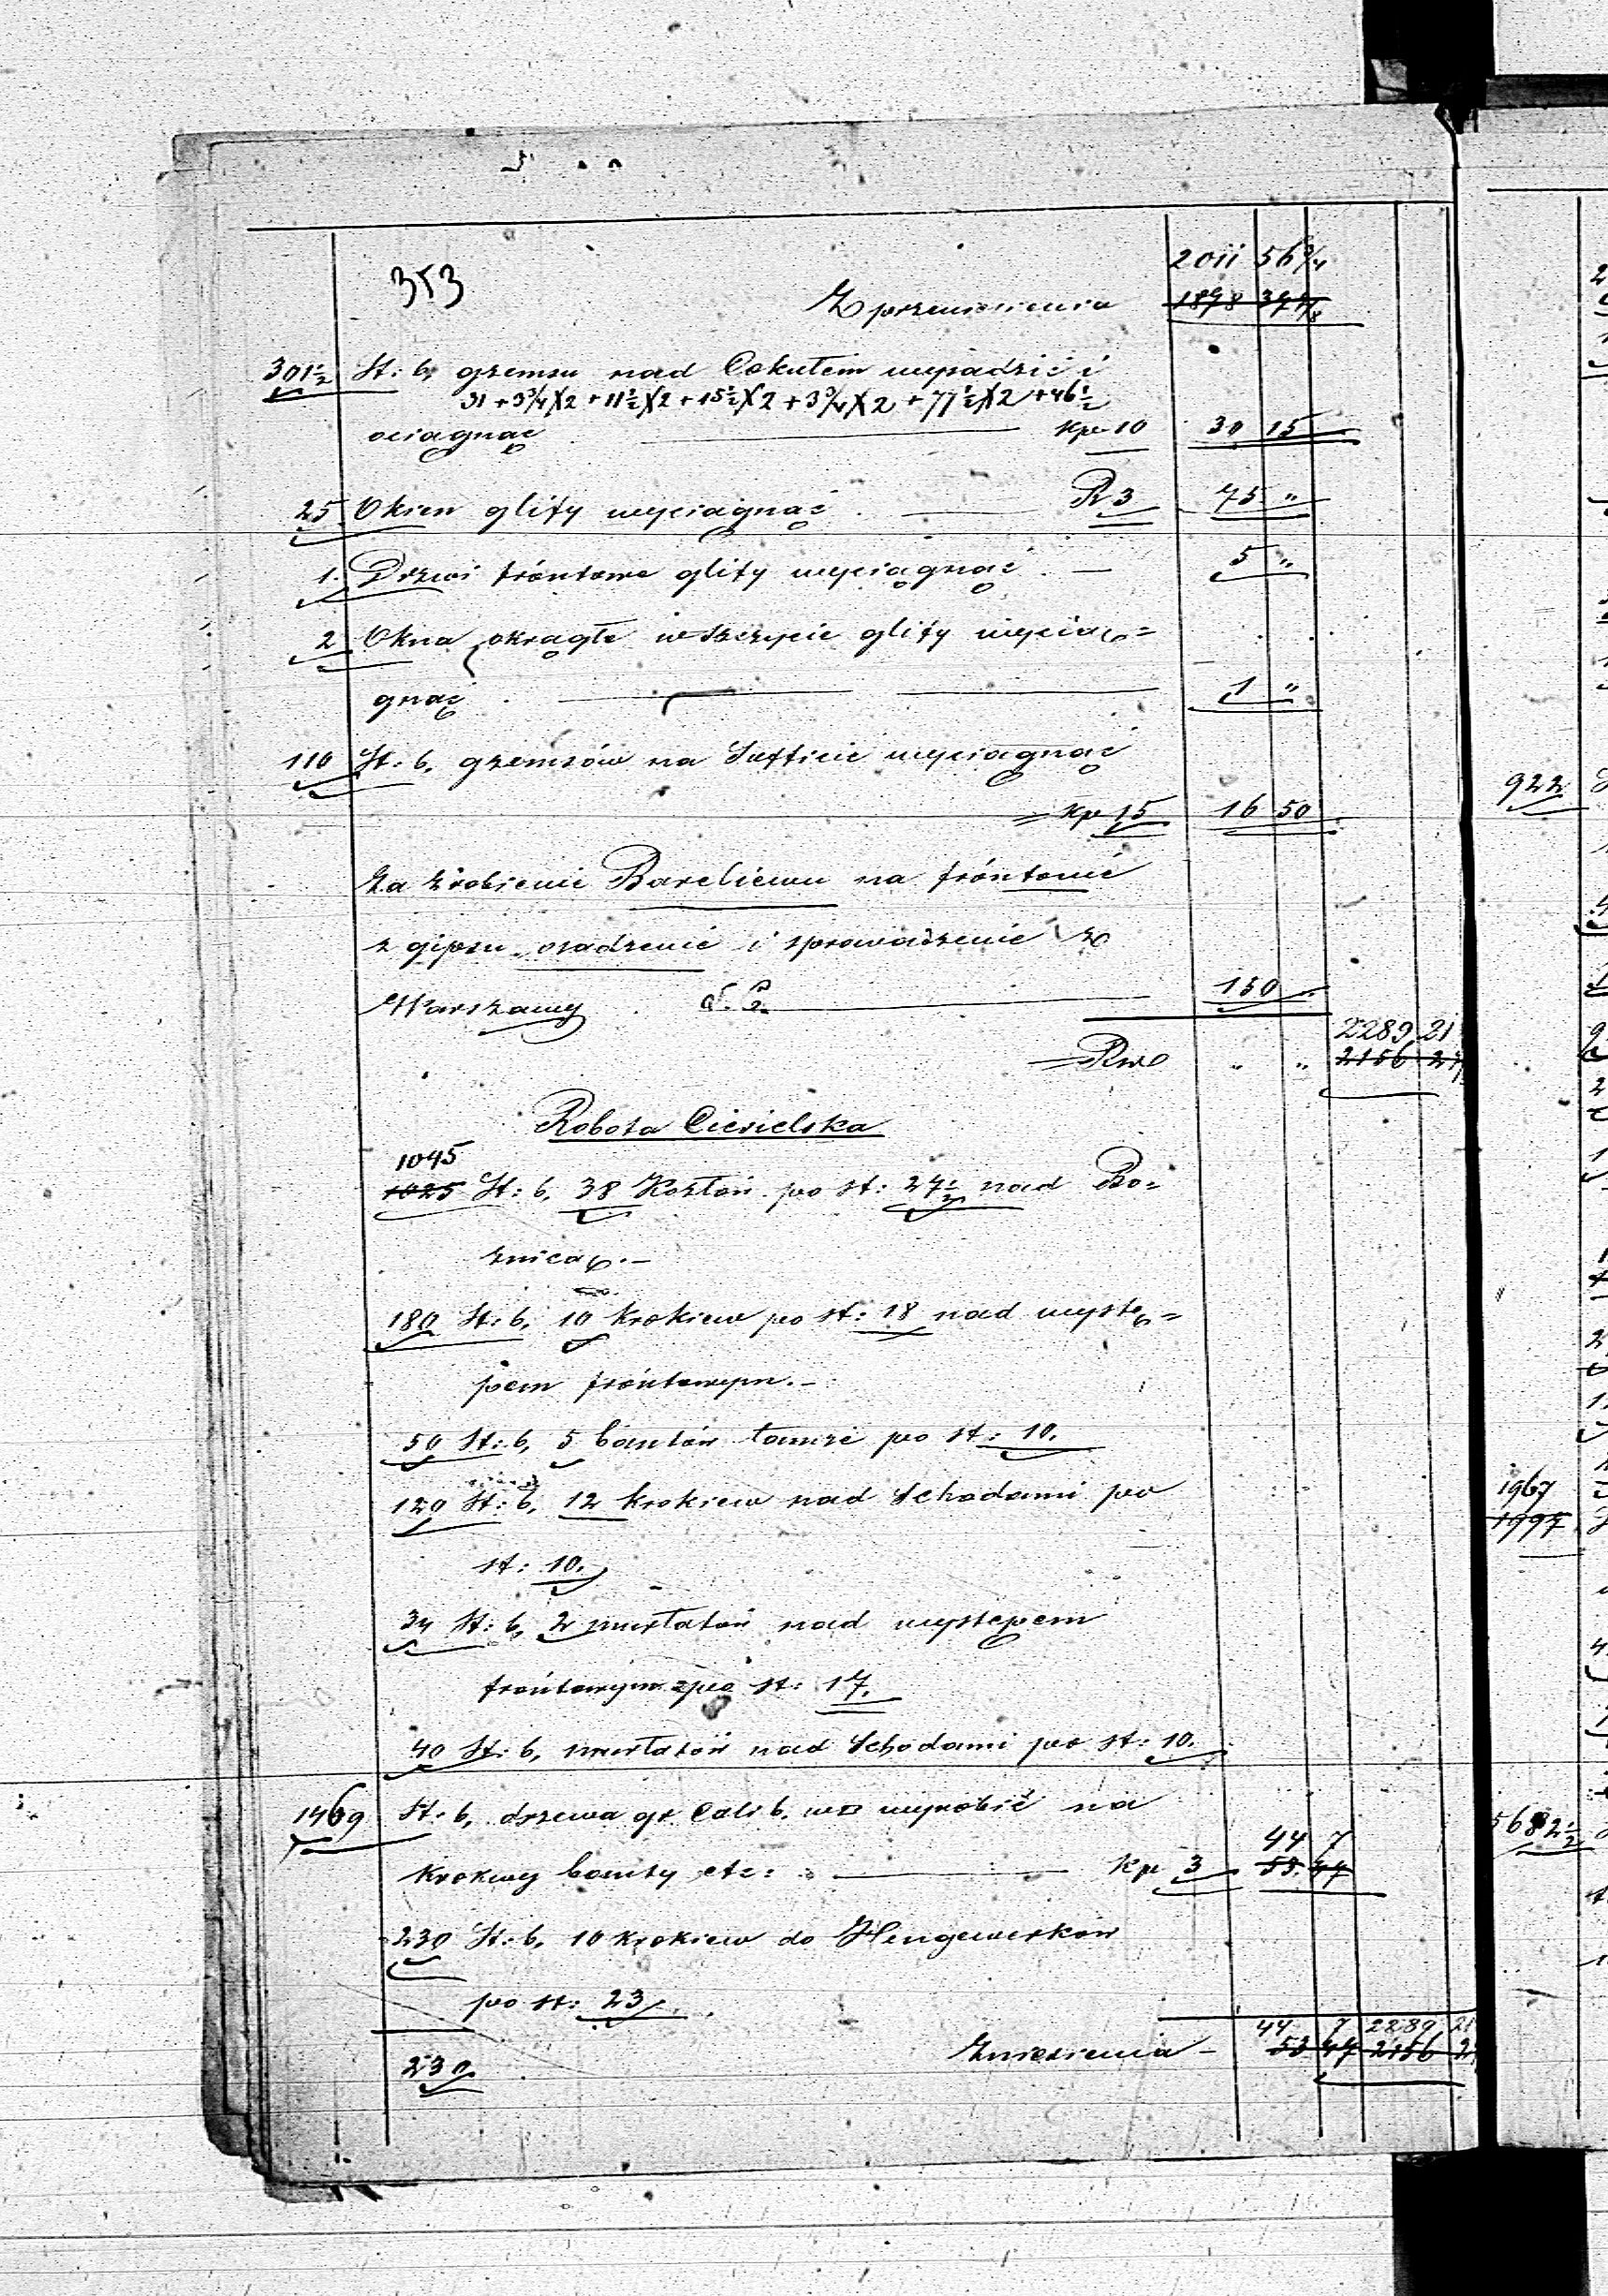 353
2011 56 3/4
Z przeniesienia 1878 37 7/8
301 1/2 St: b, gzemsu nad Cokułem wysadzić i
31 + 3 3/4 X 2 + 11 1/2 X 2 + 15 1/2 X 2 + 3 3/4 X 2 + 77 1/2 X 2 + 46 1/2
ociągnąć Kp 10 30 15
25 Okien glify wyciągnąć R 3 75 "
1. Drzwi fróntowe glify wyciągnąć — 5 "
2 Okna okrągłe w szczycie glify wycią=
gnąć 1 "
110 St: b, gzemsów na Suffície wyciągnąć
= Kp 15 16 50
Za zrobienie Bareliewu na fróntonie
z gipsu osadzenie i sprowadzenie z
Warszawy 150
2289 21
Rwe " " 2156 2
Robota Ciesielska
1045
1025 St: b, 38 Kozłów po st: 27 1/2 nad Bo=
żnicą.—
180 St: b, 10 krokiew po st: 18 nad wystę=
pem fróntowym.—
50 St: b, 5 bantów tamże po st: 10.
120 St: b, 12 krokiew nad Schodami po
st: 10.
34 St: b, 2 murłatów nad występem
fróntowym po st: 17.
40 St: b, murłatów nad Schodami po st: 10.
1469 St: b, drzewa gr Cali 6. wyrobić na
44 7
krokwy banty etc: Kp 3 53. 47
230 St: b, 10 krokiew do Hengewerków
po st: 23
44 7 2289 21
Zniesienia — 53 47 2156 2
230
922
1967
1997
5682 1/2